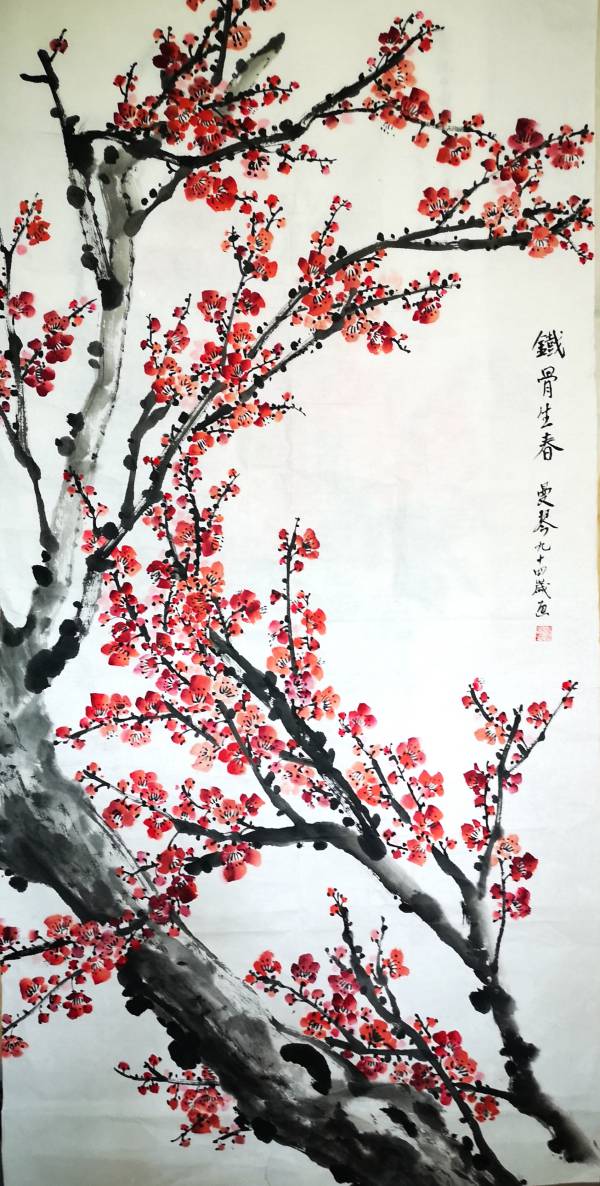 鐵骨生春 曼琴九十四歲画